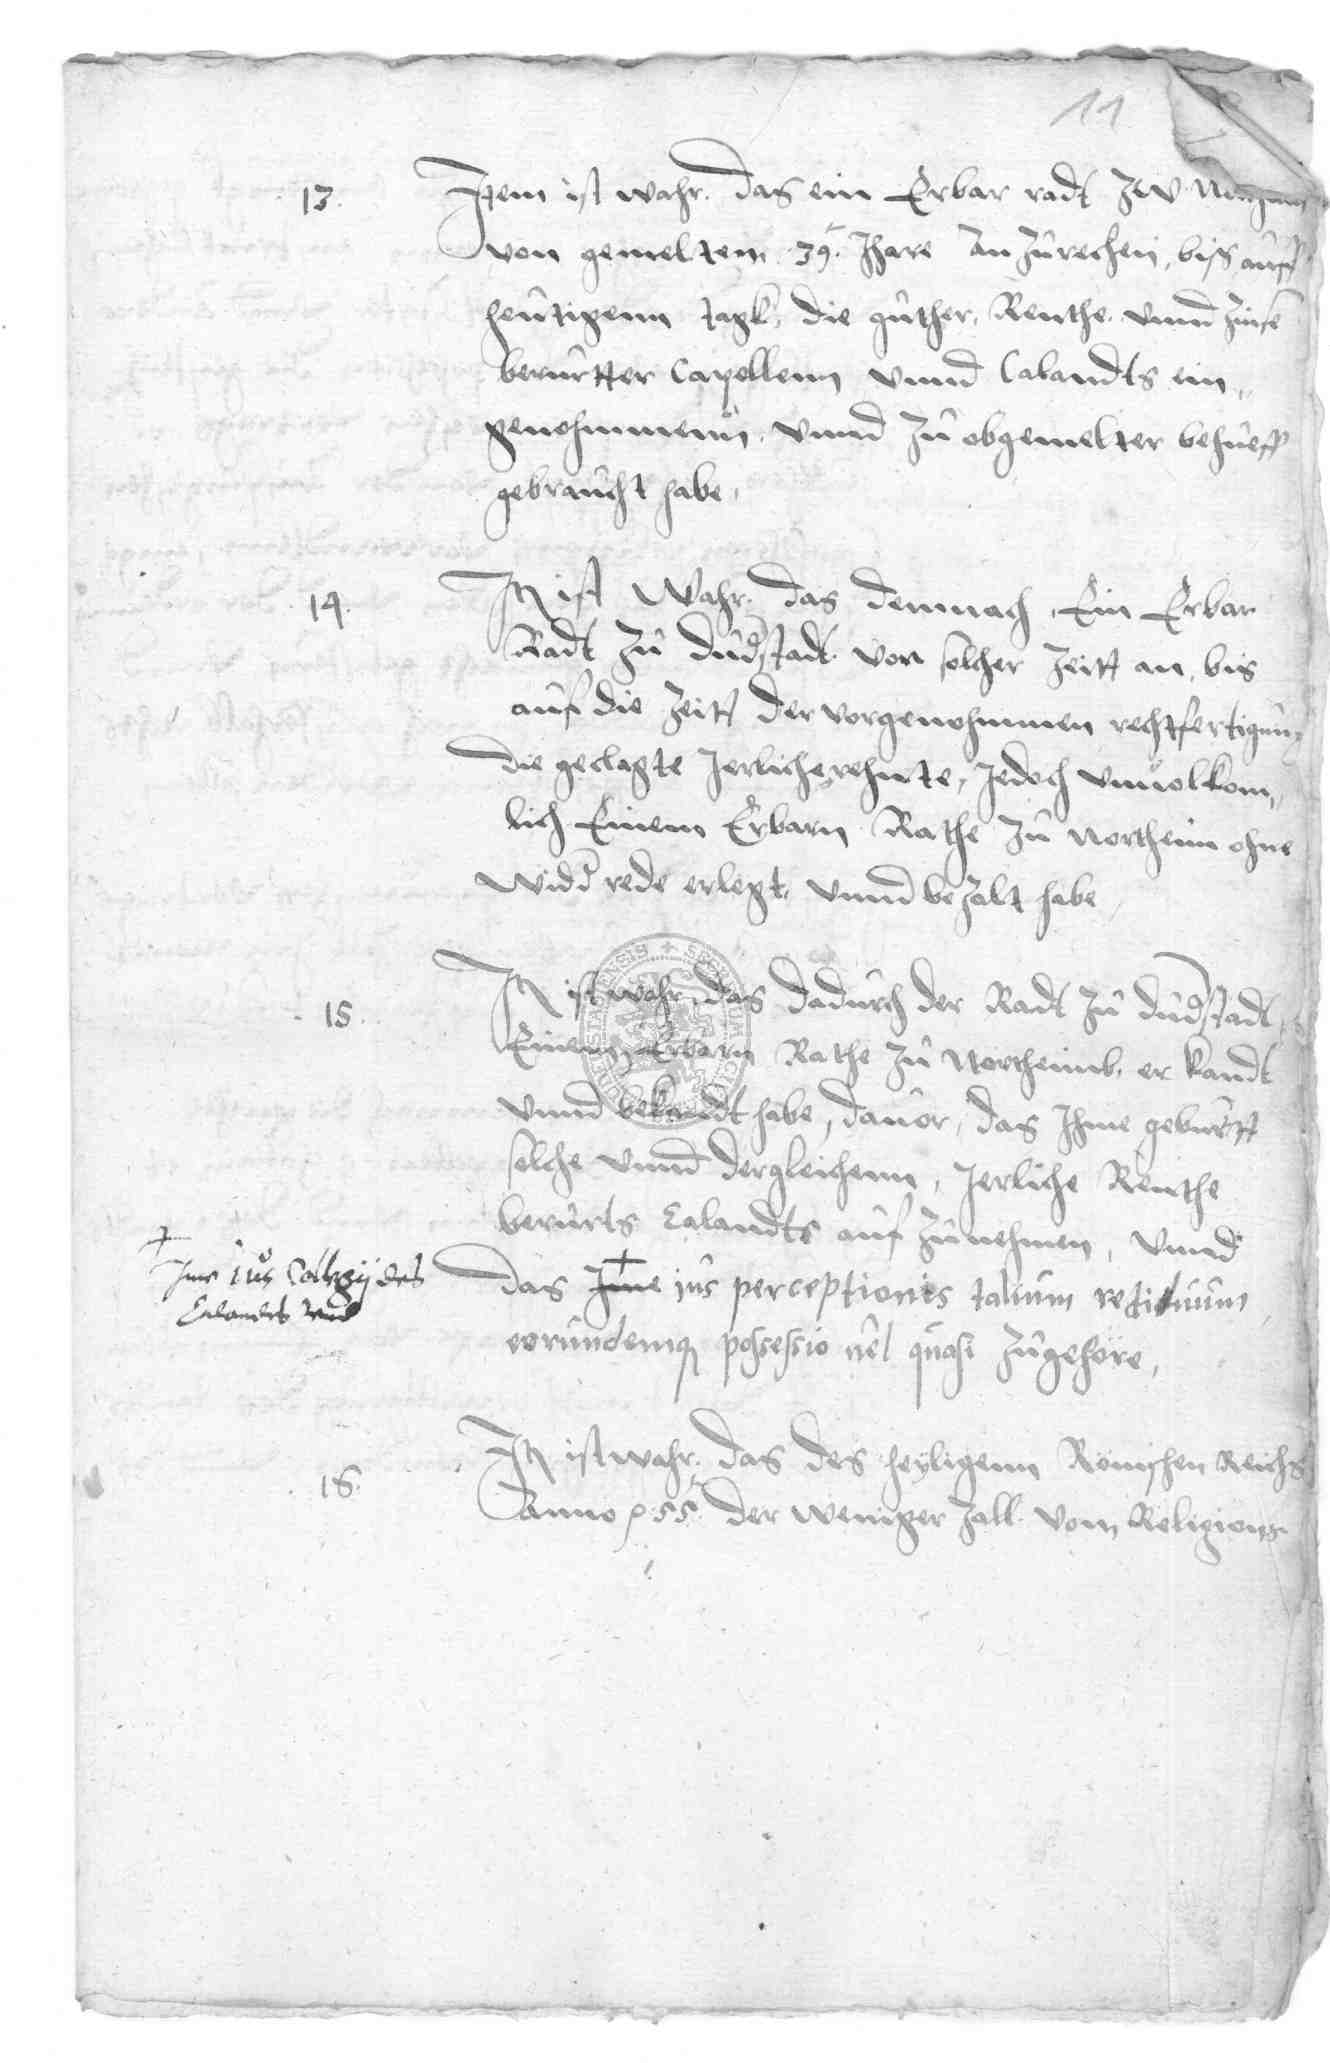 11
13. Item ist wahr. das ein Erbar radt zw
von gemelten 39. Jhare an zurechen, biss auff
heutigenn tagk, die guther, Renthe vnnd Zinse
berurtter Capellenn vnnd Calandts ein„
genohmmenn, vnnd zu obgemelter behueff
gebraucht habe,
14. Itē ist Wahr. das demnach, Ein Erbar
Radt zu Dud̄stadt von solcher Zeitt an, bis
auf die Zeitt der vorgenohmmen rechtfertigun
die geclagte Jerliche rehnte, Jedoch vnuolkom„
lich Einem Erbarn Rathe zu Northeim ohne
widd̄ rede erlegt, vnnd bezalt habe,
15. Itē ist wahr, das dadurch der Radt zu Dud̄stadt,
Einem Erbarn Rathe zu Northeimb, er kandt
vnnd bekandt habe, dauor, das Jhme geburtt
solche vnnd dergleichenn, Jerliche Renthe
berurts Calandts auf zunehmen, vnnd
† Jme ius Collegij des
Calandts vnd
das Jme jus perceptionis talium redituum
eorundemq possessio uel quasi zugehore,
16. Itē ist wahr, das des heyligenn Romschen Reichs
Anno 55 der weniger Zall vom Religions